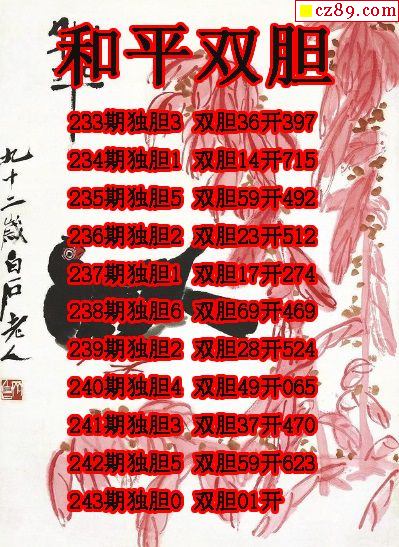 cz89.com
和平双胆
233期独胆3 双胆36开397
234期独胆1 双胆14开715
235期独胆5 双胆59开492
236期独胆2 双胆23开512
237期独胆1 双胆17开274
238期独胆6 双胆69开469
239期独胆2 双胆28开524
240期独胆4 双胆49开065
241期独胆3 双胆37开470
242期独胆5 双胆59开623
243期独胆0 双胆01开
九十二岁白石老人